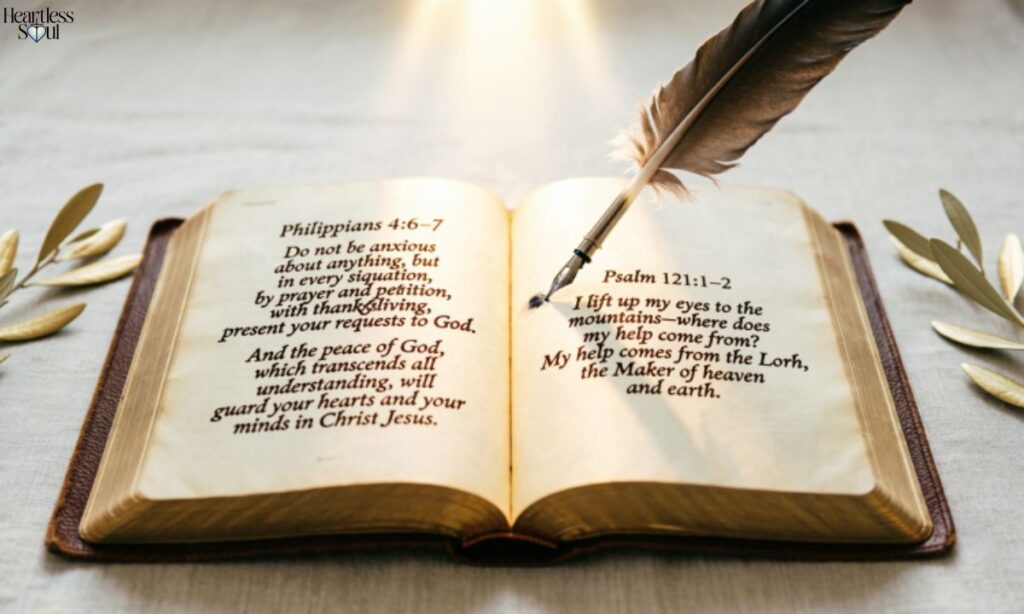 Heartless
Soul
Philippians 4:6–7
Do not be anxious
about anything, but
in every siquation,
by prayer and petition,
with thanksliving,
present your requests to God.
And the peace of God,
which transcends all
understanding, will
guard your hearts and your
minds in Christ Jesus.
Psalm 121:1–2
I lift up my eyes to the
mountains—where does
my help come from?
My help comes from the Lorh,
the Maker of heaven
and earth.